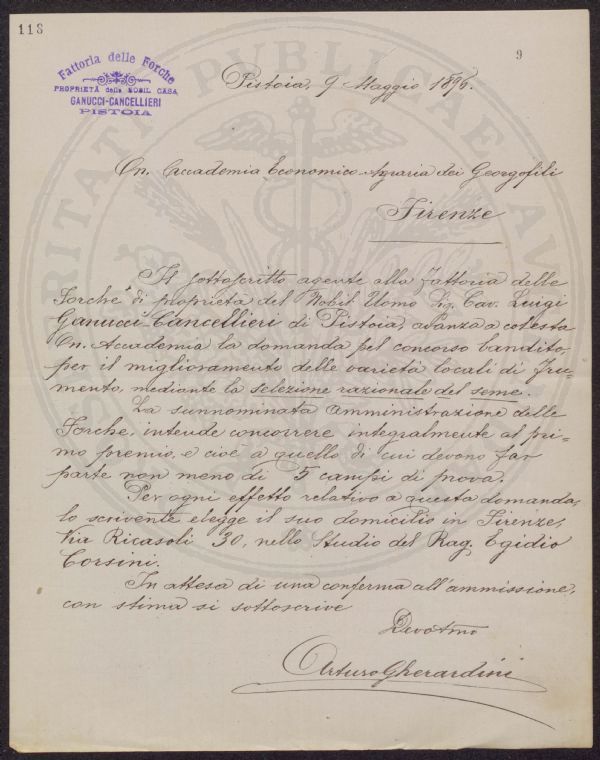 118
9
Fattoria delle Forche
PROPRIETÀ della NOBIL CASA
GANUCCI-CANCELLIERI
PISTOIA
Pistoia, 9 Maggio 1896.
On. Accademia Economico-Agraria dei Georgofili
Firenze
Il sottoscritto agente alla Fattoria delle
Forche di proprietà del Nobil Uomo Sig. Cav. Luigi
Ganucci-Cancellieri di Pistoia, avanza a cotesta
On. Accademia la domanda pel concorso bandito,
per il miglioramento delle varietà locali di fru-
mento, mediante la selezione razionale del seme.
La sunnominata amministrazione delle
Forche, intende concorrere integralmente al pri-
mo premio, e cioè a quello di cui devono far
parte non meno di 5 campi di prova.
Per ogni effetto relativo a questa domanda,
lo scrivente elegge il suo domicilio in Firenze,
Via Ricasoli 30, nello Studio del Rag. Egidio
Corsini.
In attesa di una conferma all'ammissione,
con stima si sottoscrive
Devotmo
Arturo Gherardini